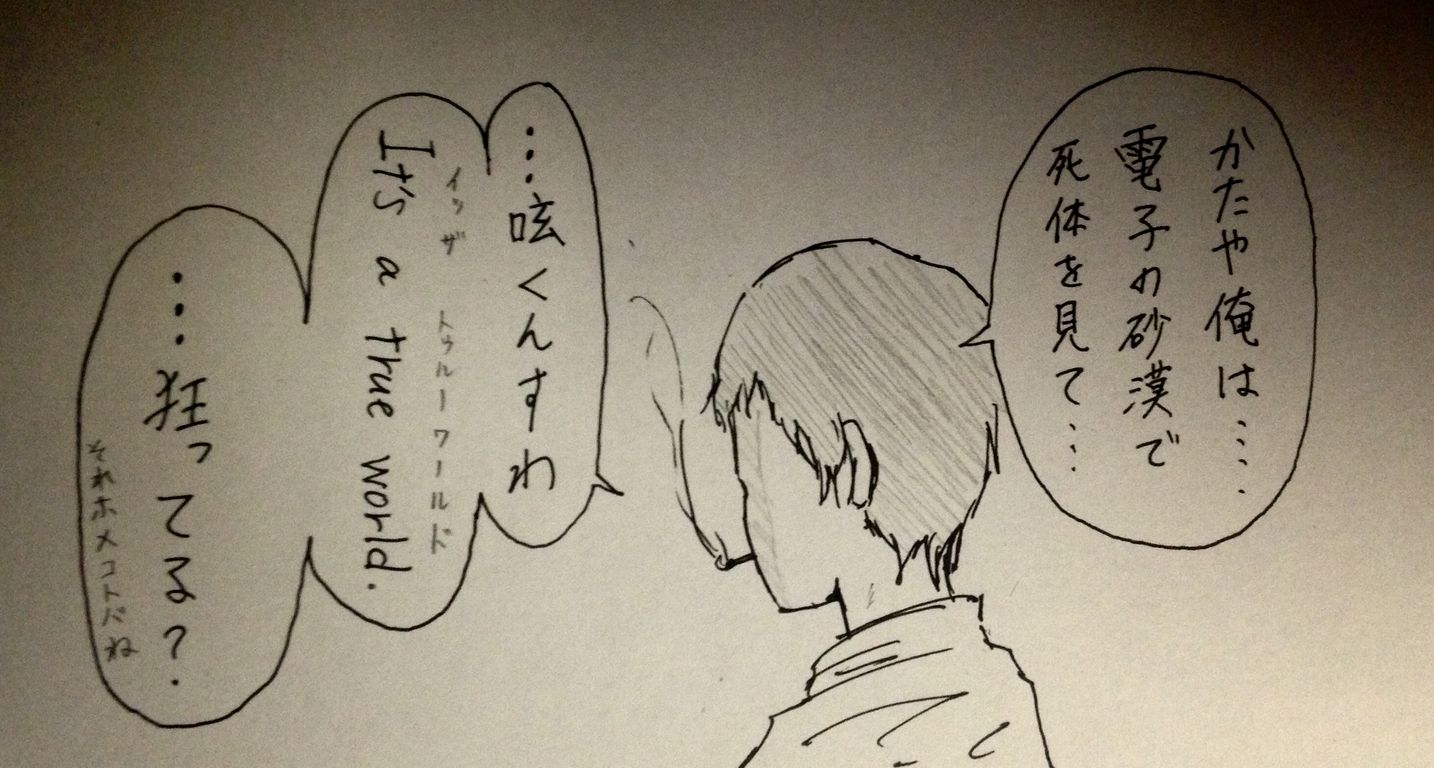 かたや俺は‥‥
電子の砂漠で
死体を見て‥‥
…呟くんすわ
イッツ ザ トゥルーワールド
It's a true world.
…狂ってる？
それホメコトバね